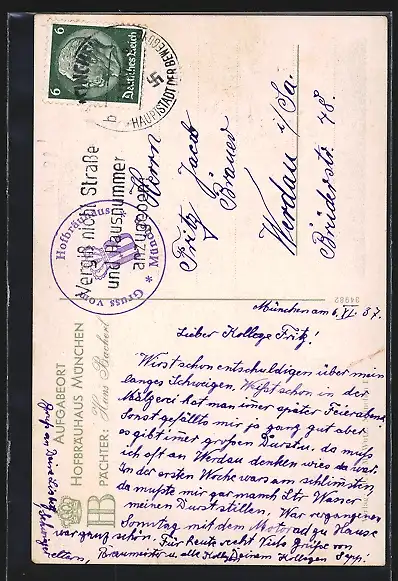 6
6
Deutsches Reich
MÜNCHEN
HAUPTSTADT DER BEWEGUNG
b
Vergiß nicht Straße
und Hausnummer
anzugeben
Gruss vom Hofbräuhaus München
HB
Herrn
Fritz Jacob
Brauer
Werdau i/Sa.
Brüderstr. 48.
34982
AUFGABEORT
HOFBRÄUHAUS MÜNCHEN
PÄCHTER: Hans Bacherl
HB
München am 6. VI. 37.
Lieber Kollege Fritz!
Wirst schon entschuldigen über mein
langes Schweigen, Weißt schon in der
Mälzerei hat man immer später Feierabend
Sonst gefällts mir ja ganz gut aber
es gibt immer großen Durst u. da muß
ich oft an Werdau denken wies da war.
In der ersten Woche wars am schlimmsten
da mußte mir gar manch Ltr Wasser
meinen Durst stillen, War vergangenen
Sonntag mit dem Motorad zu Hause
war ganz schön. Für heute recht viele Grüße von
Deinem Kollegen Sepp!
Gruß an Deine
eltern, Braumeister u. alle Kolleg.